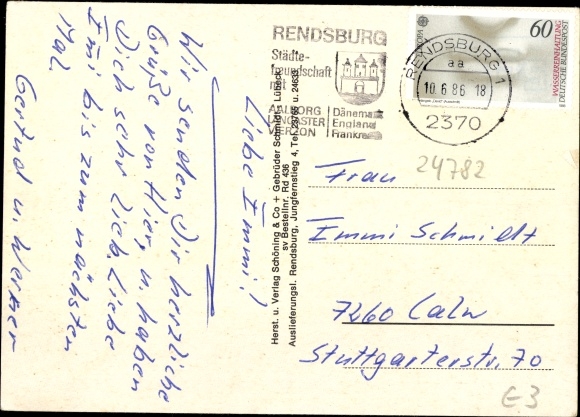 RENDSBURG
Städte-
freundschaft
mit
AALBORG Dänemark
LANCASTER England
VIERZON Frankreich
EUROPA
60
WASSERREINHALTUNG
DEUTSCHE BUNDESPOST
RENDSBURG 1
aa
10.6.86-18
2370
24782
Liebe Immi!
Wir senden Dir herzliche
Grüße von Hier, u. haben
Dich sehr lieb. Liebe
Immi bis zum nächsten
Mal.
Gertrud u. Werner
Herst. u. Verlag Schöning & Co + Gebrüder Schmidt, Lübeck
sv Bestellnr. Rd 436
Auslieferungsl. Rendsburg, Jungfernstieg 4, Tel.
Frau
Immi Schmidt
7260 Calw
Stuttgarterstr. 70
E3